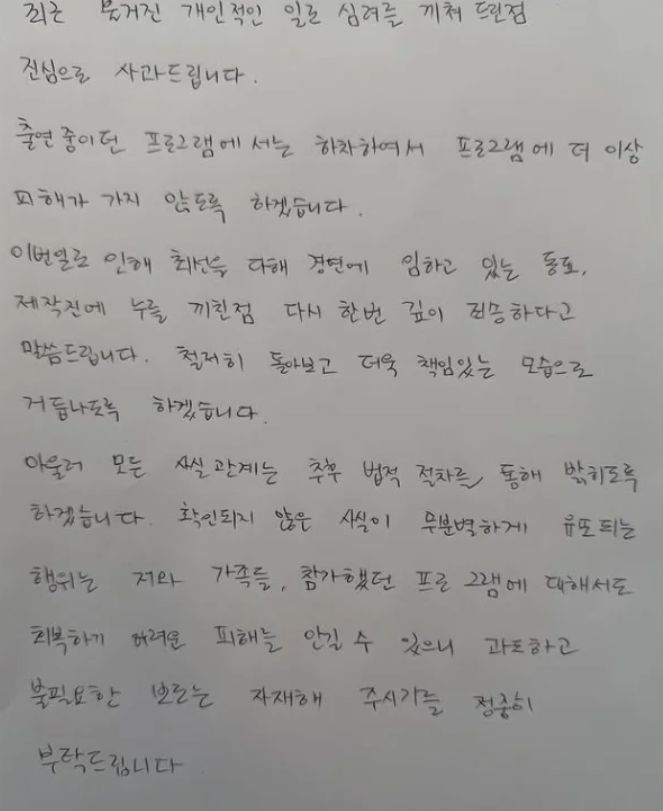 최근 불거진 개인적인 일로 심려를 끼쳐 드린점
진심으로 사과드립니다.
출연중이던 프로그램에서는 하차하여서 프로그램에 더 이상
피해가 가지 않도록 하겠습니다.
이번일로 인해 최선을 다해 경연에 임하고 있는 동료,
제작진에 누를 끼친점 다시 한번 깊이 죄송하다고
말씀드립니다. 철저히 돌아보고 더욱 책임있는 모습으로
거듭나도록 하겠습니다.
아울러 모든 사실관계는 추후 법적 절차를 통해 밝히도록
하겠습니다. 확인되지 않은 사실이 무분별하게 유포되는
행위는 저와 가족들, 참가했던 프로그램에 대해서도
회복하기 어려운 피해를 안길 수 있으니 과도하고
불필요한 보도는 자재해 주시기를 정중히
부탁드립니다